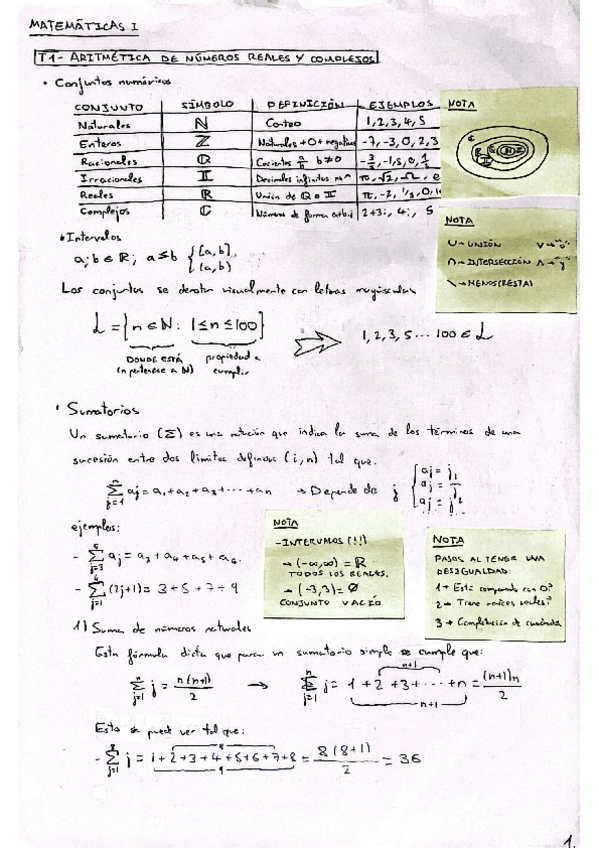 MATEMÁTICAS I
T1- ARITMÉTICA DE NÚMEROS REALES Y COMPLEJOS
• Conjuntos numéricos
CONJUNTO SÍMBOLO DEFINICIÓN EJEMPLOS
Naturales ℕ Conteo 1,2,3,4,5
Enteros ℤ Naturales + 0 + negativos -7, -3, 0, 2, 3
Racionales ℚ Cocientes a/b b≠0
Irracionales 𝕀 Decimales infinitos π, √2, e
Reales ℝ Unión de ℚ e 𝕀 π, -2, 1/3, 0,
Complejos ℂ Números de forma a+b·i 2+3i, 4i, 5
NOTA
NOTA
∪→UNIÓN ∨→"o"
∩→INTERSECCIÓN ∧→"y"
\→MENOS(RESTA)
• Intervalos
a;b ∈ ℝ; a≤b { [a,b] (a,b)
Los conjuntos se denotan visualmente con letras mayúsculas
L = {n ∈ ℕ: 1≤n≤100} 1,2,3,5...100 ∈ L
DONDE ESTÁ propiedad a
(n pertenece a ℕ) cumplir
• Sumatorios
Un sumatorio (Σ) es una notación que indica la suma de los términos de una
sucesión entre dos límites definidos (i,n) tal que.
Σ aj = a1 + a2 + a3 + ... + an → Depende de j
ejemplos:
- Σ(j=3) aj = a3 + a4 + a5 + a6.
- Σ(j=1, 4) (2j+1) = 3+5+7+9
NOTA
- INTERVALOS (!!)
→ (-∞,∞) = ℝ
TODOS LOS REALES.
→ (-3,3) = ∅
CONJUNTO VACÍO
NOTA
PASOS AL TENER UNA
DESIGUALDAD:
1→ Está comparado con 0?
2→ Tiene raíces reales?
3→ Completación de cuadrados
1) Suma de números naturales
Esta fórmula dicta que para un sumatorio simple se cumple que:
Σ(j=1, n) j = n(n+1)/2 → Σ(j=1, n) j = 1+2+3+...+n = (n+1)n/2
n+1
n+1
Esto se puede ver tal que:
- Σ(j=1) j = 1+2+3+4+5+6+7+8 = 8(8+1)/2 = 36
9
9
1.